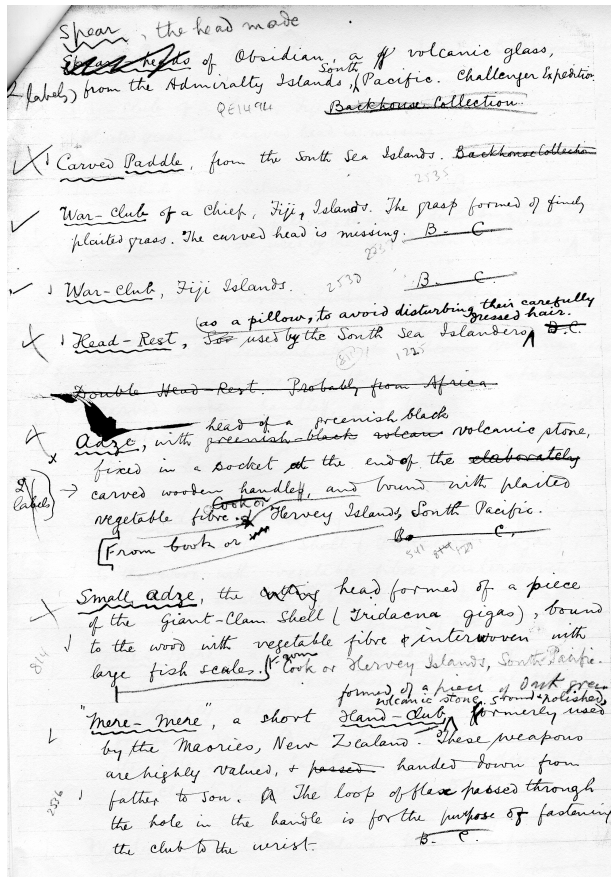 Spear, the head made
of Obsidian, a volcanic glass,
2 labels) from the Admiralty Islands, South Pacific. Challenger Expedition
QE1494 Backhouse Collection.
Carved Paddle, from the South Sea Islands. Backhouse Collection
2535
War-Club of a Chief, Fiji, Islands. The grasp formed of finely
plaited grass. The carved head is missing. B. C.
War-Club, Fiji Islands. 2530 B. C.
(as a pillow, to avoid disturbing their carefully
dressed hair.
Head-Rest, used by the South Sea Islanders, B.C.
1225
Double Head-Rest. Probably from Africa
head of a greenish black
Adze, with greenish-black volcanic stone,
fixed in a socket at the end of the elaborately
2 labels) → carved wooden handle, and bound with plaited
Cook or
vegetable fibre. Hervey Islands, South Pacific.
[From Cook or B. C.
541
Small adze, the cutting head formed of a piece
of the Giant-Clam Shell (Tridacna gigas), bound
to the wood with vegetable fibre & interwoven with
814
large fish scales. From Cook or Hervey Islands, South Pacific.
formed of a piece of Dark green
volcanic stone, ground & polished,
"Mere-Mere", a short Hand-Club, formerly used
by the Maories, New Zealand. These weapons
are highly valued, & passed handed down from
2536
father to son. The loop of flax passed through
the hole in the handle is for the purpose of fastening
the club to the wrist. B. C.